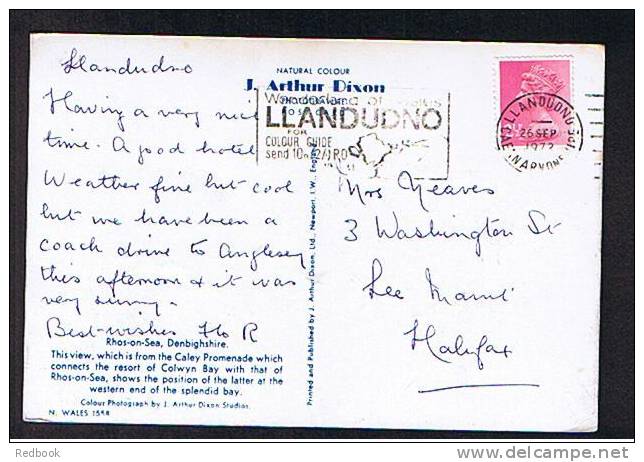 Llandudno
Having a very nice
time. A good hotel
Weather fine but cool
but we have been a
coach drive to Anglesey
this afternoon & it was
very sunny.
Best wishes Flo R
NATURAL COLOUR
J. Arthur Dixon
Wonderland of Wales
LLANDUDNO
FOR
COLOUR GUIDE
send 10
LLANDUDNO
26 SEP
1972
CAERNARVONSHIRE
Mrs Neaves
3 Washington St
Lee Mount
Halifax
Printed and Published by J. Arthur Dixon, Ltd., Newport, I.W., England
Rhos-on-Sea, Denbighshire.
This view, which is from the Caley Promenade which
connects the resort of Colwyn Bay with that of
Rhos-on-Sea, shows the position of the latter at the
western end of the splendid bay.
Colour Photograph by J. Arthur Dixon Studios.
N. WALES
Redbook
delcampe.net